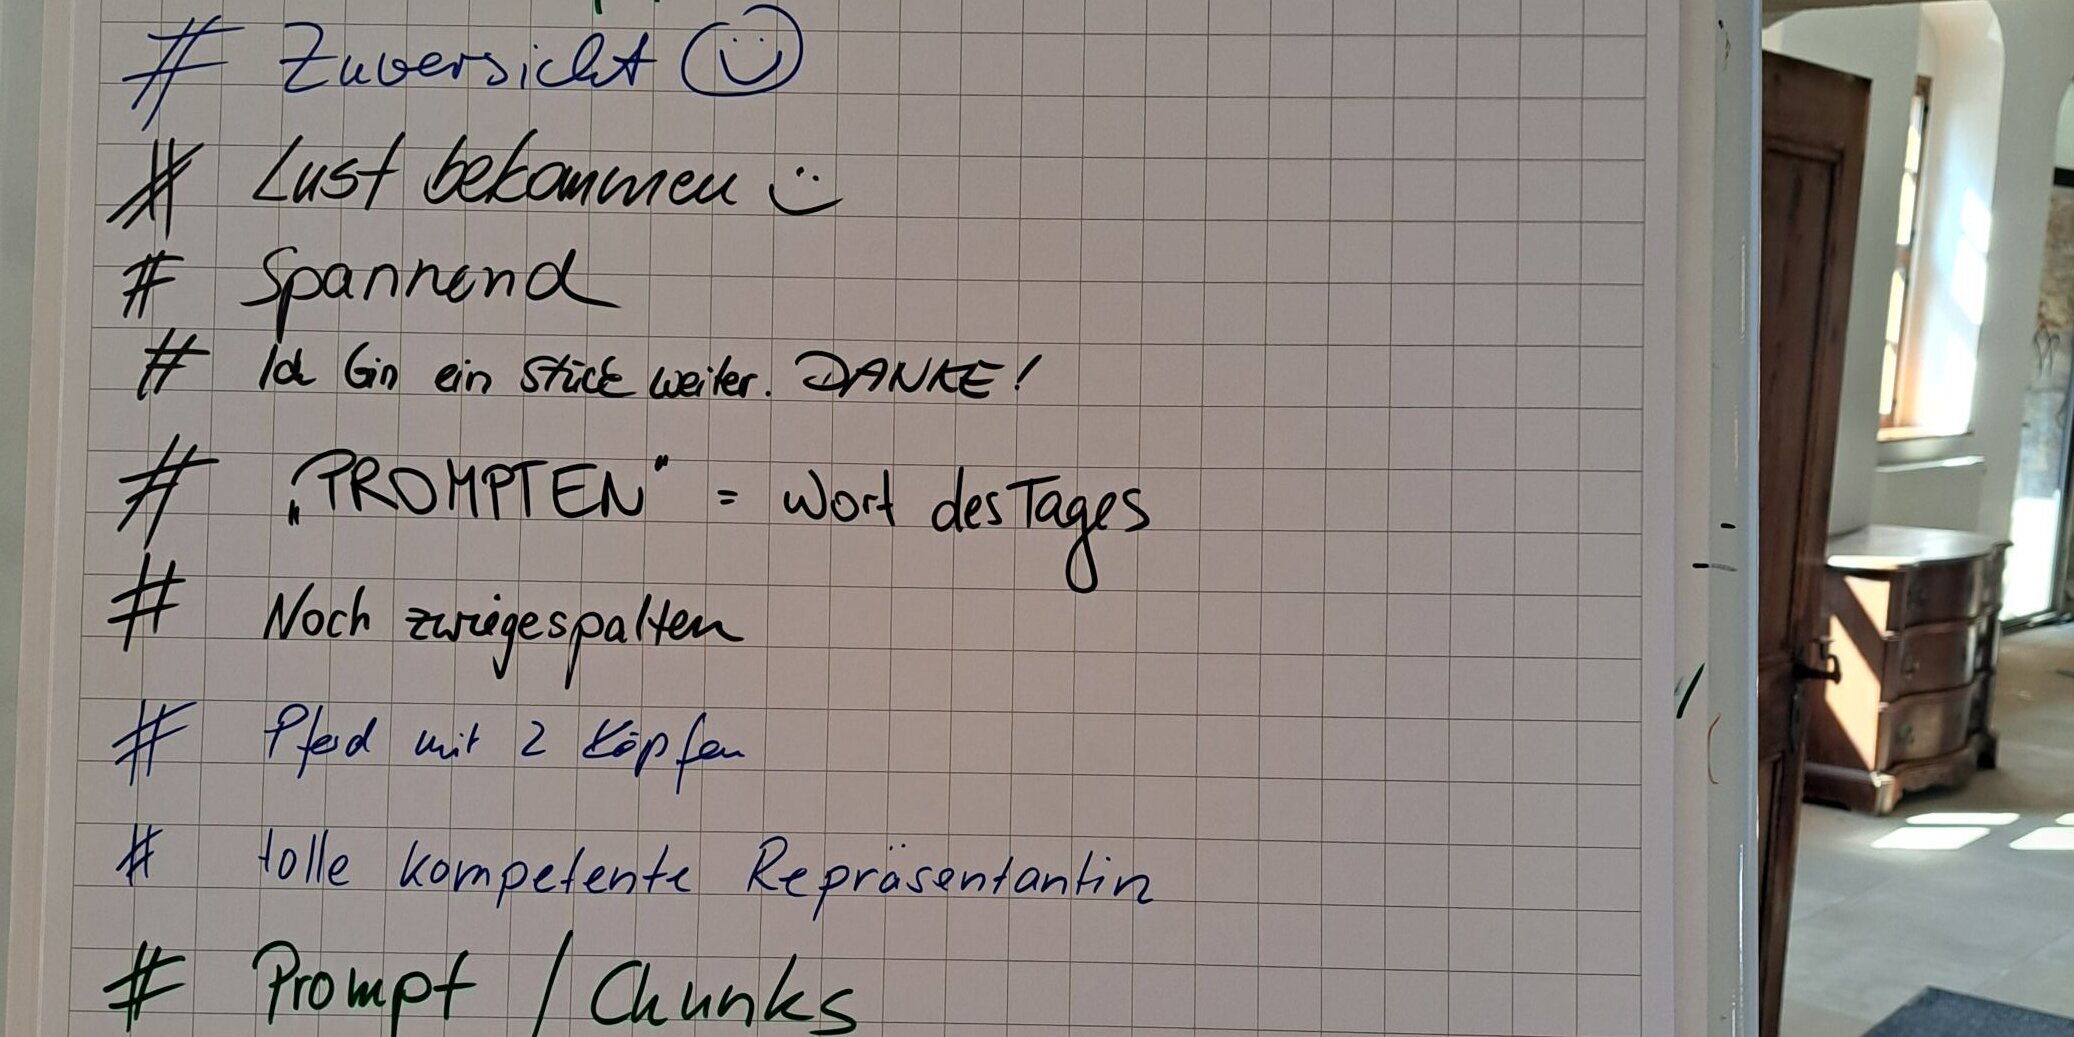 # Zuversicht ☺
# Lust bekommen :)
# Spannend
# Ich bin ein Stück weiter. DANKE!
# „PROMPTEN" = Wort des Tages
# Noch zwiegespalten
# Pferd mit 2 Köpfen
# tolle kompetente Repräsentantin
# Prompt / Chunks